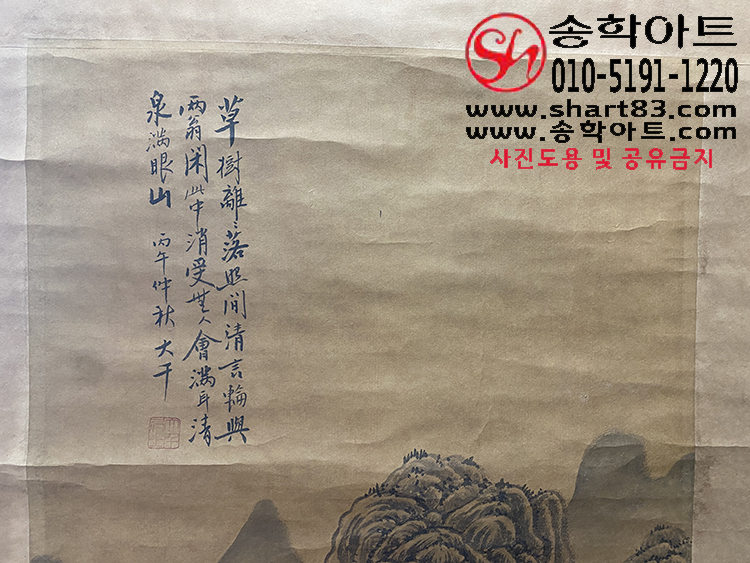 Sh 송학아트
010-5191-1220
www.shart83.com
www.송학아트.com
사진도용 및 공유금지
草樹離〻落照間清言輸與
兩翁閑此中消受無人會滿耳清
泉滿眼山 丙午仲秋 大千